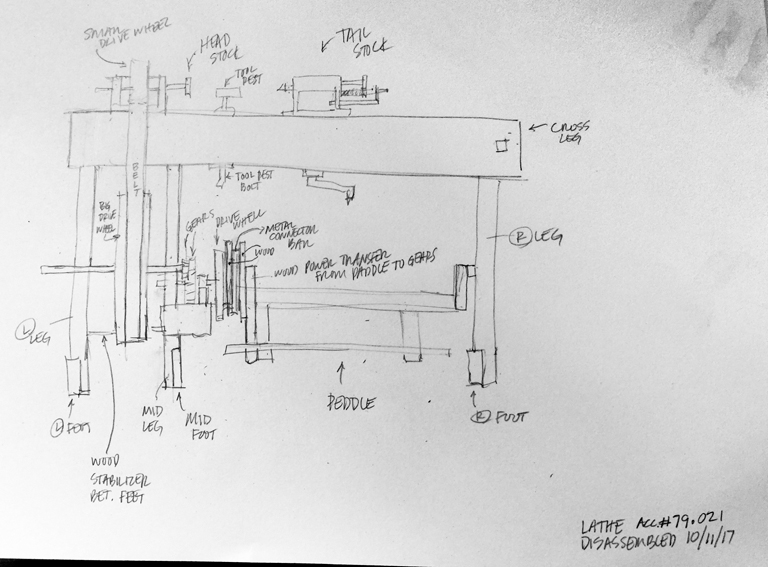 SMALL
DRIVE WHEEL
HEAD
STOCK
TOOL
REST
TAIL
STOCK
CROSS
LEG
BELT
TOOL REST
BOLT
BIG
DRIVE
WHEEL
GEARS
DRIVE
WHEEL
METAL
CONNECTOR
BAR
WOOD
WOOD POWER TRANSFER
FROM PADDLE TO GEARS
R LEG
L
LEG
L FOOT
MID
LEG
MID
FOOT
PEDDLE
R FOOT
WOOD
STABILIZER
BET. FEET
LATHE ACC.# 79.021
DISASSEMBLED 10/11/17